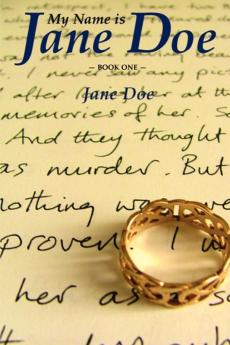 My Name is
Jane Doe
– BOOK ONE –
Jane Doe
I never saw any pic
I after her at the
memories of her. So
And they thought
as murder. But
nothing was
proven. I w
her as a s